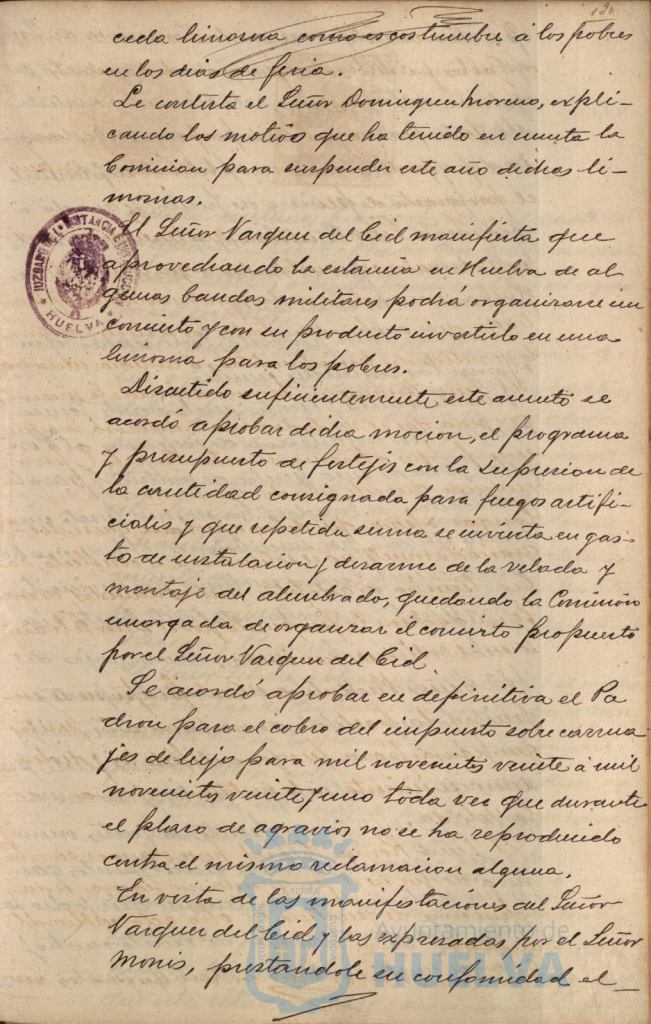 ceda limosna como es costumbre á los pobres
en los dias de feria.
Le contesta el Señor Dominguez Moreno, expli-
cando los motivos que ha tenido en cuenta la
Comision para suspender este año dichas li-
mosnas.
El Señor Vazquez del Cid manifiesta que
aprovechando la estancia en Huelva de al
gunas bandas militares podrá organizarse un
concierto y con su producto invertirlo en una
limosna para los pobres.
Discutido suficientemente este asunto se
acordó aprobar dicha mocion, el programa
y presupuesto de festejos con la supresion de
la cantidad consignada para fuegos artifi-
ciales y que repetida suma se invierta en gas-
to de instalacion y desarme de la velada y
montaje del alumbrado, quedando la Comision
encargada de organizar el concierto propuesto
por el Señor Vazquez del Cid.
Se acordó aprobar en definitiva el Pa
dron para el cobro del impuesto sobre carrua
jes de lujo para mil novecientos veinte á mil
novecientos veinte y uno toda vez que durante
el plazo de agravios no se ha reproducido
contra el mismo reclamacion alguna.
En vista de las manifestaciones del Señor
Vazquez del Cid y las expresadas por el Señor
Monis, prestandole su conformidad el
JUZGADO DE 1ª INSTANCIA
HUELVA
Ayuntamiento de
HUELVA